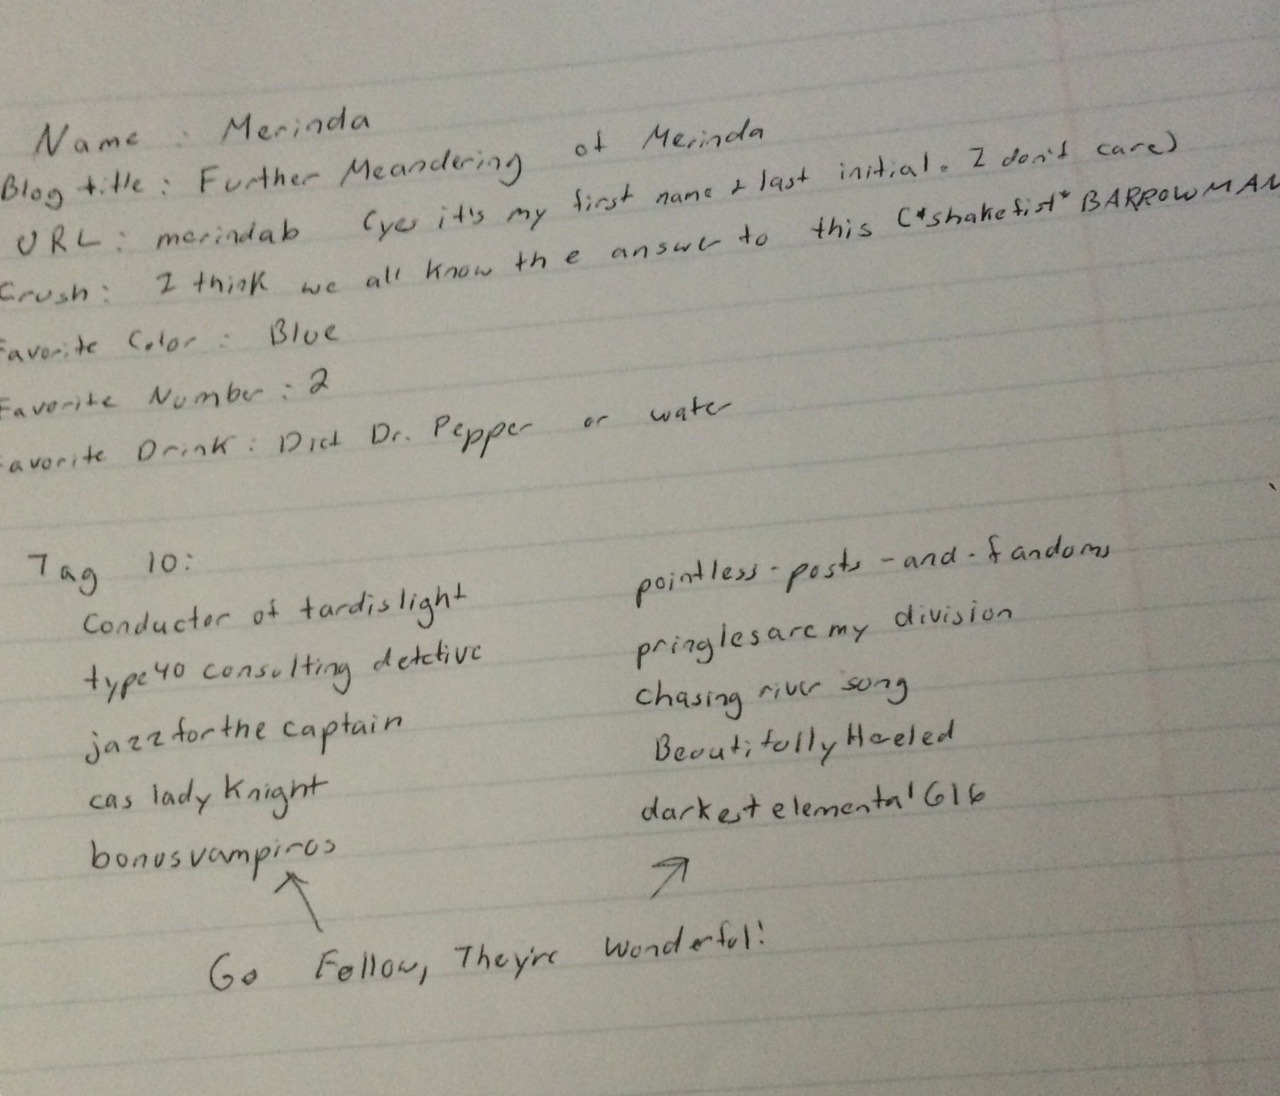 Name : Merinda
Blog title : Further Meandering of Merinda
URL : merindab (yes it's my first name & last initial. I don't care)
Crush : I think we all know the answer to this (*shakefist* BARROWMAN
Favorite Color : Blue
Favorite Number : 2
Favorite Drink : Diet Dr. Pepper or water
Tag 10:
conductor of tardis light
type40 consulting detctive
jazzforthe captain
cas lady Knight
bonusvampires
pointless-posts-and-fandoms
pringlesare my division
chasing river song
Beautifully Heeled
darkest elemental 616
Go Follow, They're Wonderful!